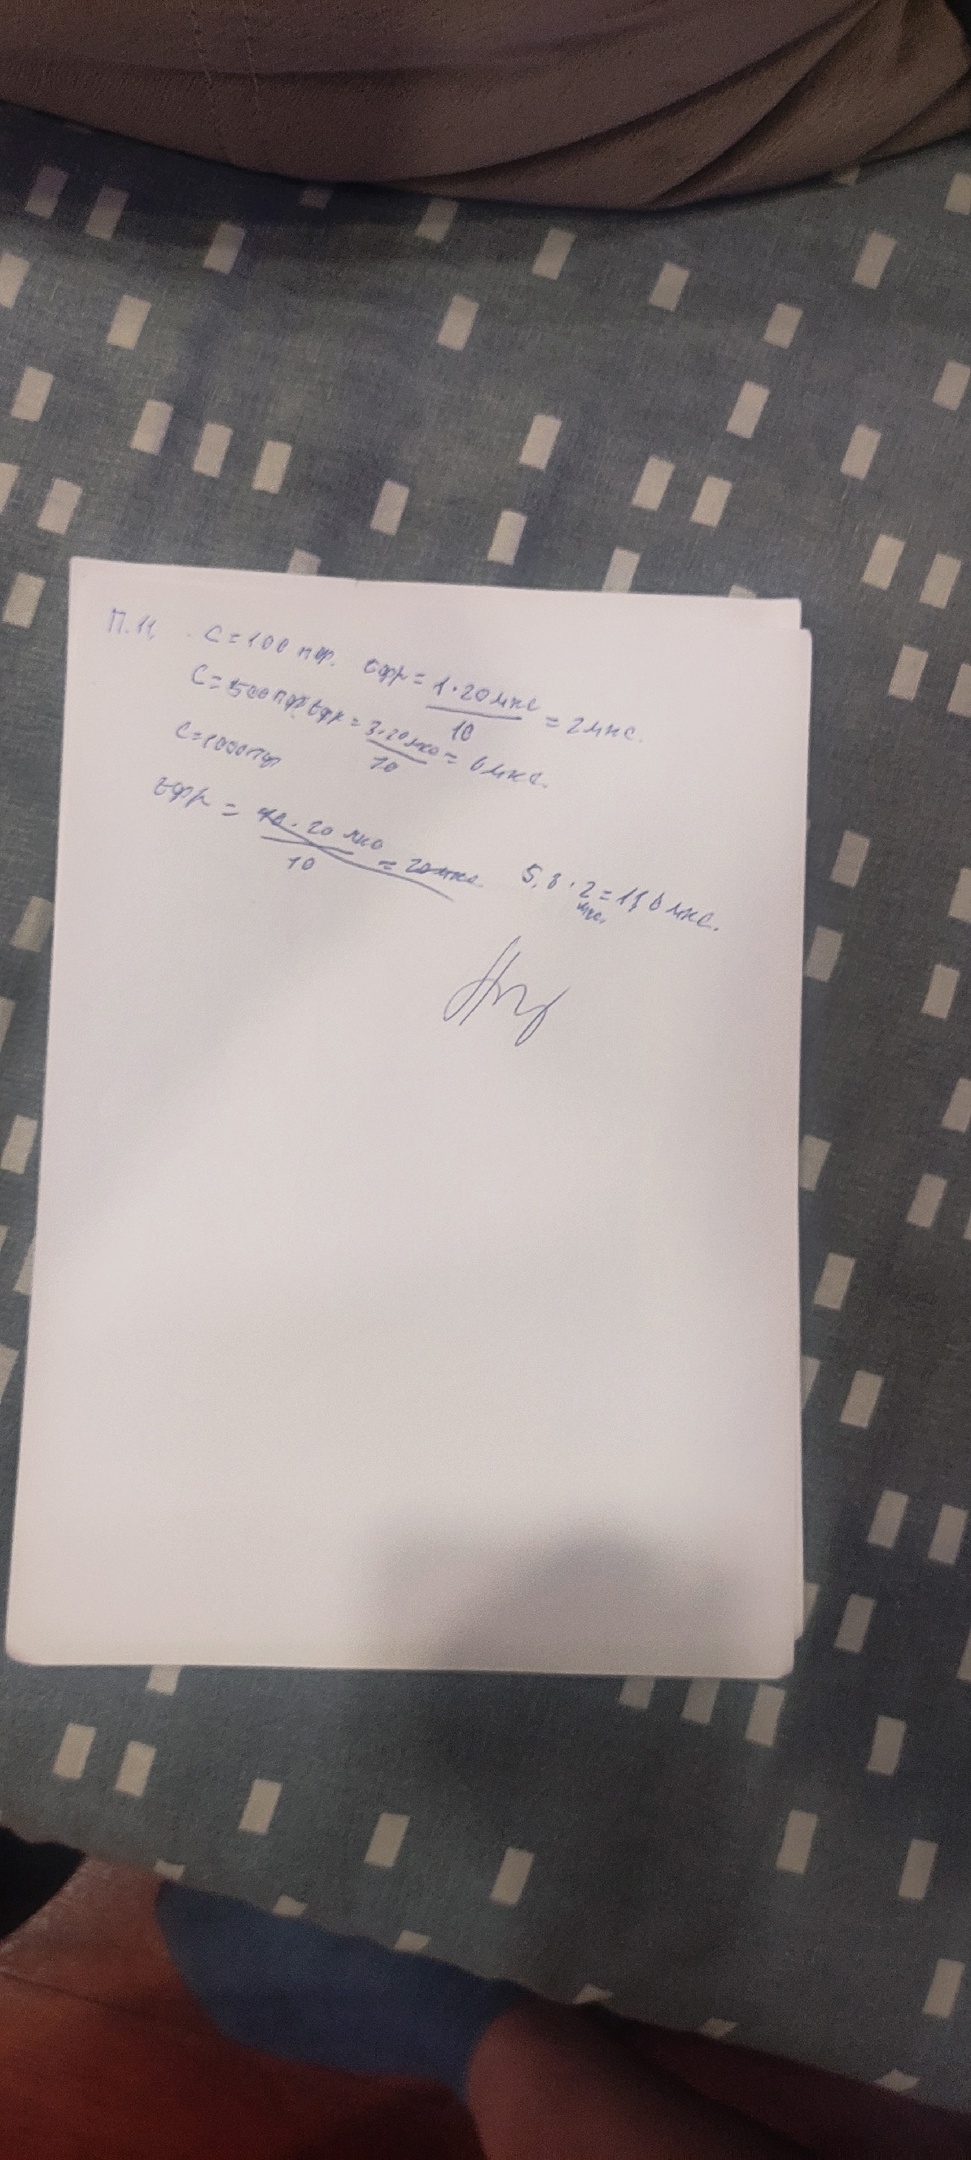 П.11. C = 100 пФ. tфр = 1·20мкс / 10 = 2мкс.
C = 500пФ tфр = 3·20мкс / 10 = 6мкс.
C = 1000пФ
tфр = 10·20 мкс / 10 = 20мкс. 5,8·2 = 11,6 мкс.
мкс.